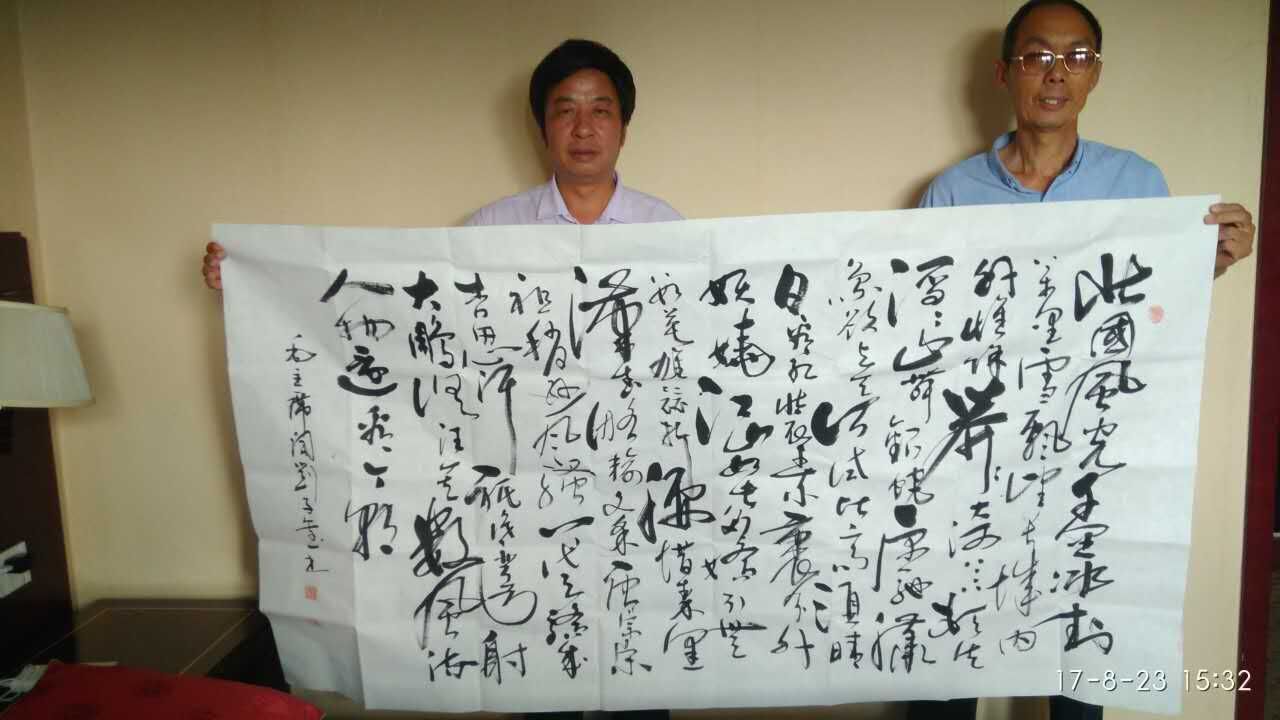 北國風光千里冰封
万里雪飘望长城内
外惟餘莽莽大河上下顿失
滔滔山舞銀蛇原驰蠟
象欲与天公试比高須晴
日看红装素裹分外
妖娆江山如此多娇引無
數英雄竞折腰惜秦皇
漢武略输文采唐宗宋
祖稍逊风骚一代天骄成
吉思汗祗识弯弓射
大鵰俱往矣數風流
人物還看今朝
毛主席词
17-8-23 15:32